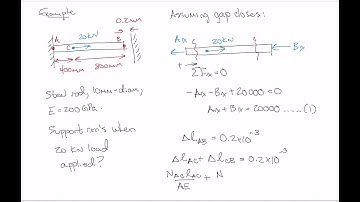 Example
0.2mm
A
C
20kN
B
400mm
800mm
Steel rod, 10mm-diam,
E = 200GPa.
Support rxn's when
20 kN load
applied?
Assuming gap closes:
Ax
C
20kN
Bx
+
ΣFx = 0
-Ax - Bx + 20000 = 0
Ax + Bx = 20000 ......(1)
ΔLAB = 0.2x10^-3
ΔLAC + ΔLCB = 0.2x10^-3
NAC LAC + N
AE